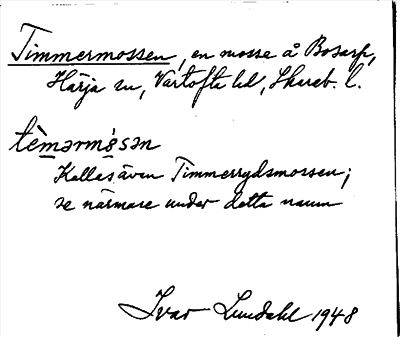 Timmermossen, en mosse å Bosarp,
Härja sn, Vartofta hd, Skarab. l.
tèmərmòsən
Kallas även Timmerrydsmossen;
se närmare under detta namn
Ivar Lundahl 1948